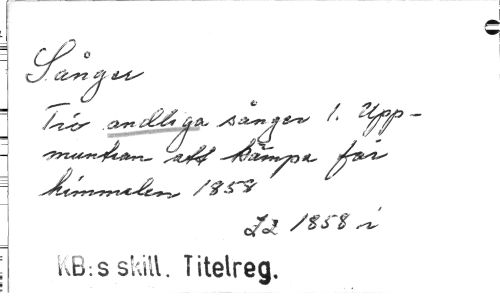 Sånger
Tio andliga sånger 1. Upp-
muntran att kämpa för
himmelen 1858
Z2 1858 i
KB:s skill. Titelreg.